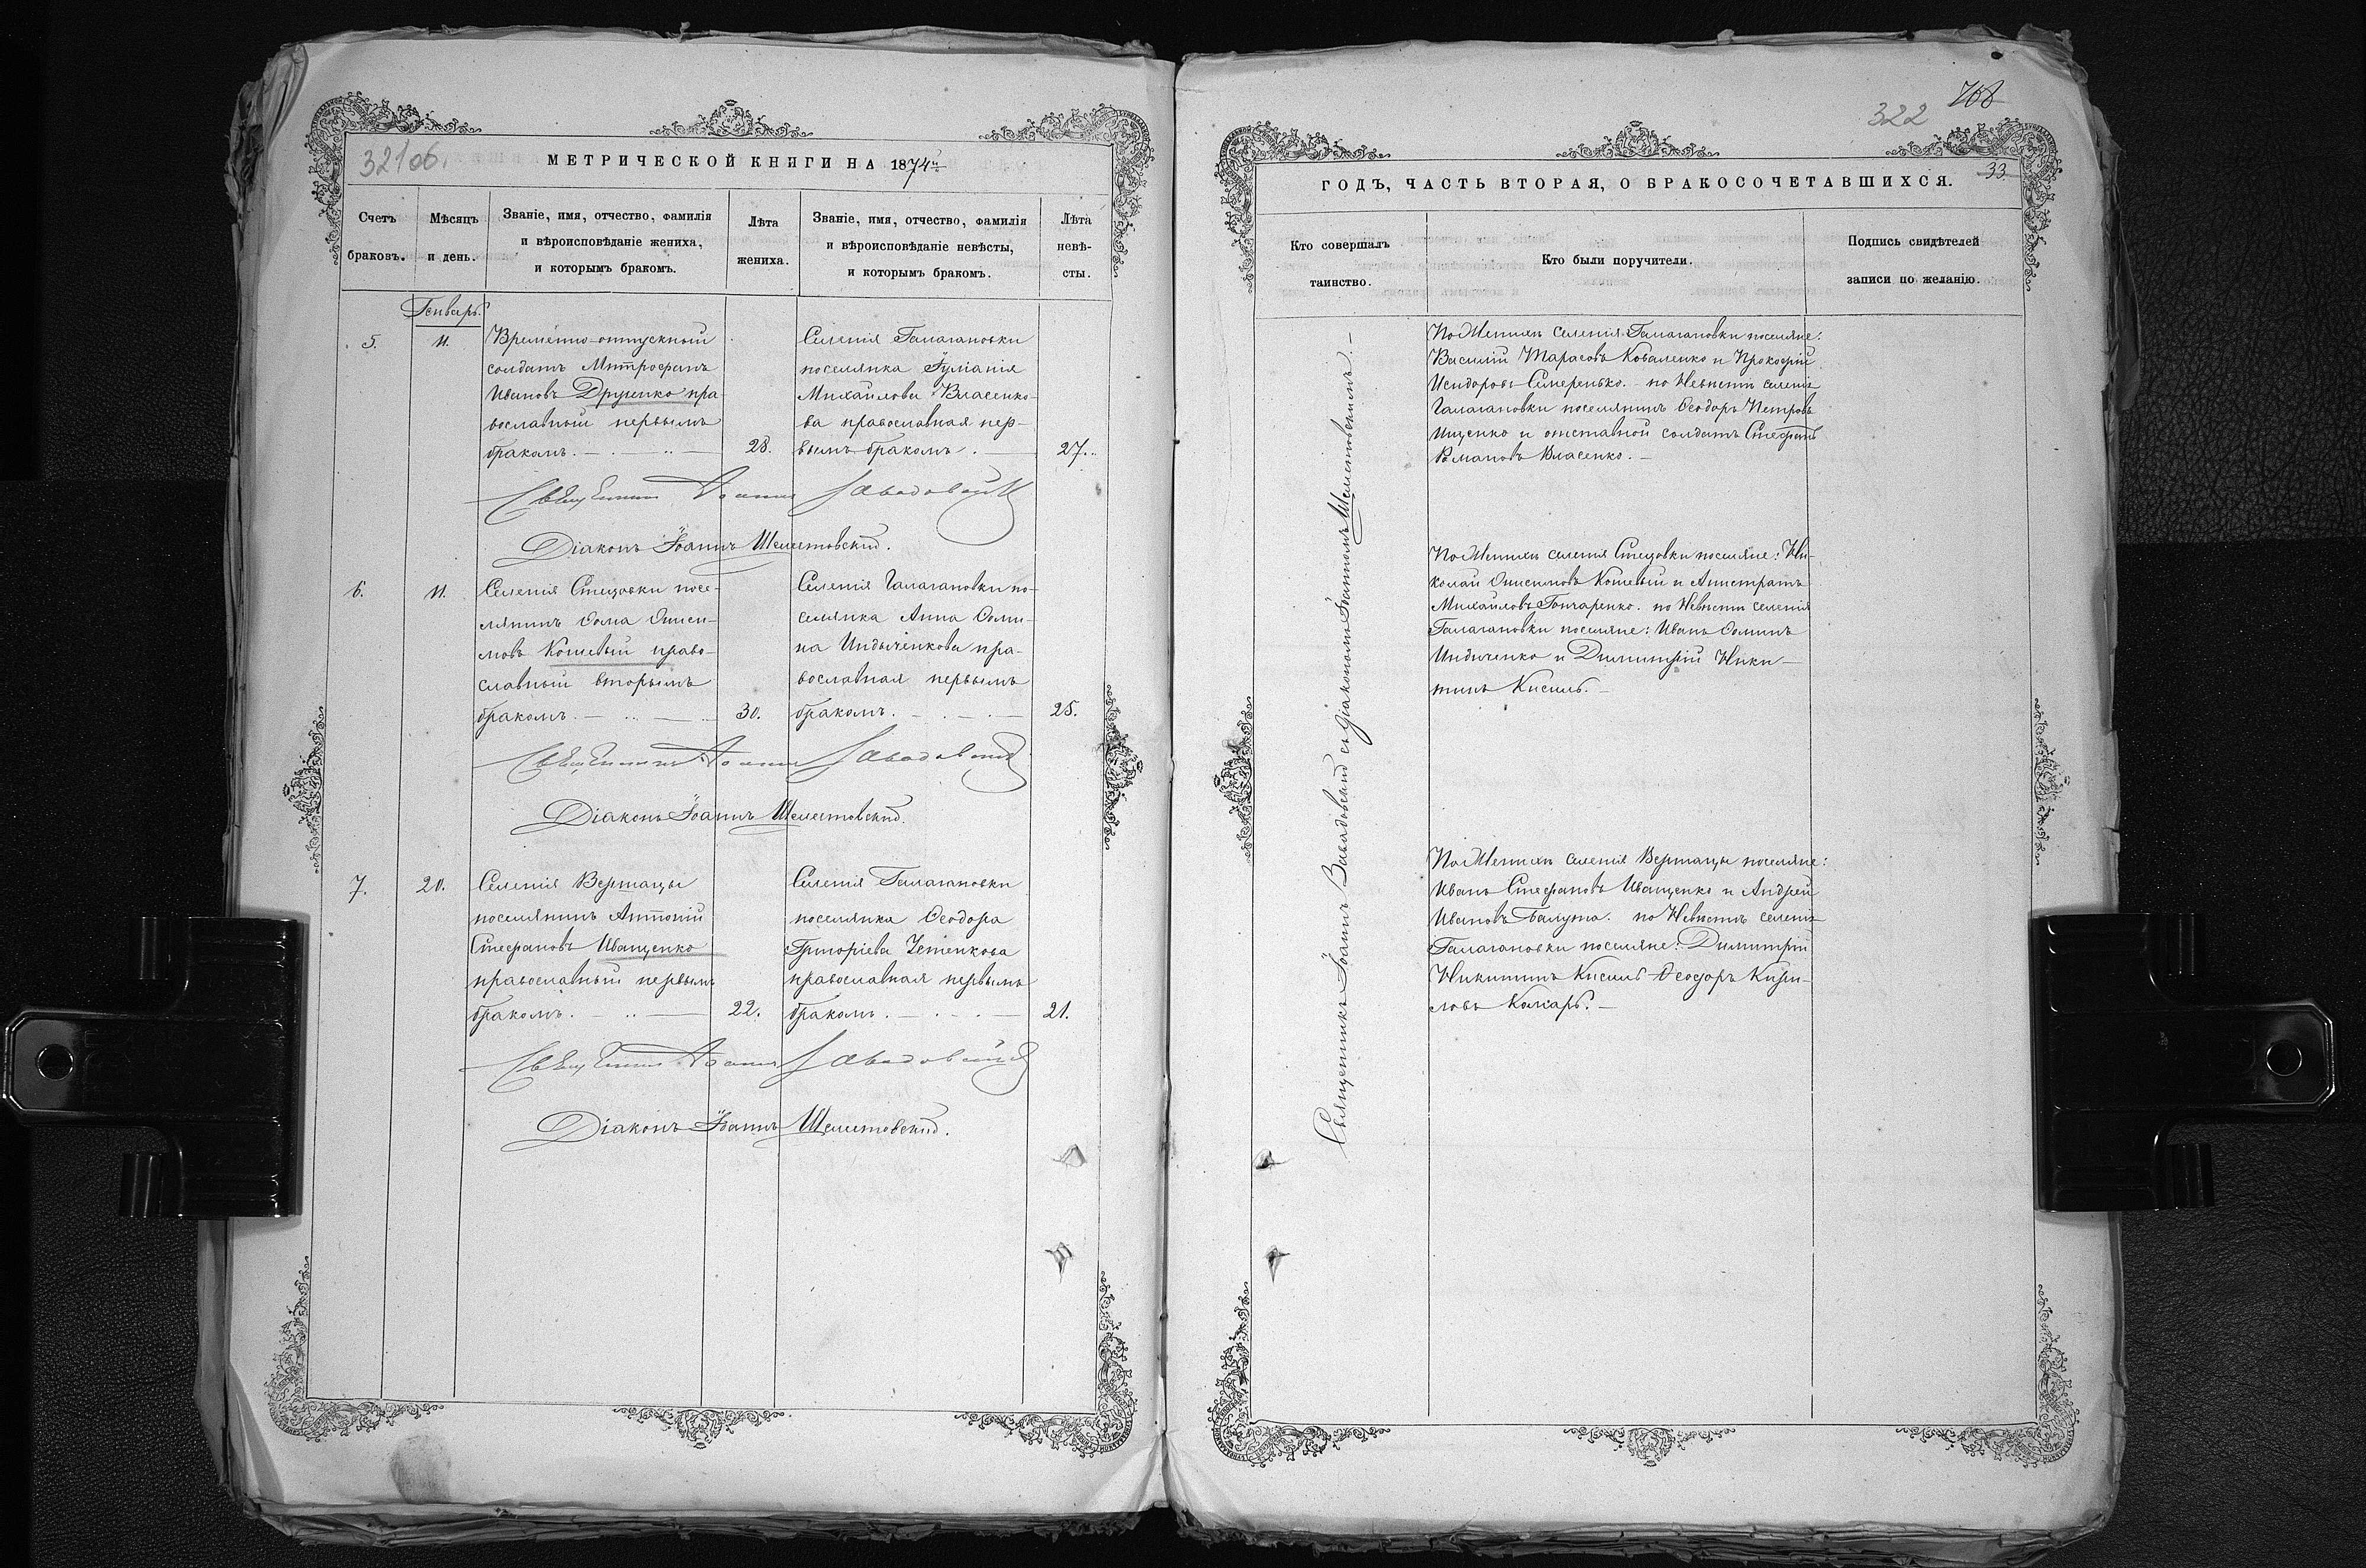 321об.
МЕТРИЧЕСКОЙ КНИГИ НА 1874й
Счетъ
браковъ.
Мѣсяцъ
и день.
Званіе, имя, отчество, фамилія
и вѣроисповѣданіе жениха,
и которымъ бракомъ.
Лѣта
жениха.
Званіе, имя, отчество, фамилія
и вѣроисповѣданіе невѣсты,
и которымъ бракомъ.
Лѣта
невѣ-
сты.
Генварь.
5.
11.
Временно-отпускный
солдатъ Митрофанъ
Ивановъ Друченко пра
вославный первымъ
бракомъ.
28.
Селенія Галагановки
поселянка Іуліанія
Михайлова Власенко-
ва православная пер-
вымъ бракомъ.
27.
Священникъ Іоаннъ Завадовскій
Діаконъ Іоаннъ Шелестовскій.
6.
11.
Селенія Стецовки посе-
лянинъ Ѳома Ониси-
мовъ Кошевый право-
славный вторымъ
бракомъ.
30.
Селенія Галагановки по-
селянка Анна Ѳоми-
на Индыченкова пра-
вославная первымъ
бракомъ.
25.
Священникъ Іоаннъ Завадовскій
Діаконъ Іоаннъ Шелестовскій.
7.
20.
Селенія Вершацы
поселянинъ Антоній
Стефановъ Иващенко
православный первымъ
бракомъ.
22.
Селенія Галагановки
поселянка Ѳеодора
Григоріева
православная первымъ
бракомъ.
21.
Священникъ Іоаннъ Завадовскій
Діаконъ Іоаннъ Шелестовскій.
708
322
33
ГОДЪ, ЧАСТЬ ВТОРАЯ, О БРАКОСОЧЕТАВШИХСЯ.
Кто совершалъ
таинство.
Кто были поручители.
Подпись свидѣтелей
записи по желанію.
Священникъ Іоаннъ Завадовскій съ діакономъ Іоанномъ Шелестовскимъ.
По Женихѣ селенія Галагановки поселяне:
Василій Тарасовъ Коваленко и Прокофій
Исидоровъ Семеренько. по Невѣстѣ селенія
Галагановки поселянинъ Ѳеодоръ Петровъ
Ищенко и отставной солдатъ Стефанъ
Романовъ Власенко.
По Женихѣ селенія Стецовки поселяне: Ни-
колай Онисимовъ Кошевый и Анистратъ
Михайловъ Гончаренко. по Невѣстѣ селенія
Галагановки поселяне: Иванъ Ѳоминъ
Индиченко и Димитрій Ники-
тинъ Кисиль.
По Женихѣ селенія Вершацы поселяне:
Иванъ Стефановъ Иващенко и Андрей
Ивановъ по Невѣстѣ селенія
Галагановки поселяне: Димитрій
Никитинъ Кисиль Ѳеодоръ Кири-
ловъ